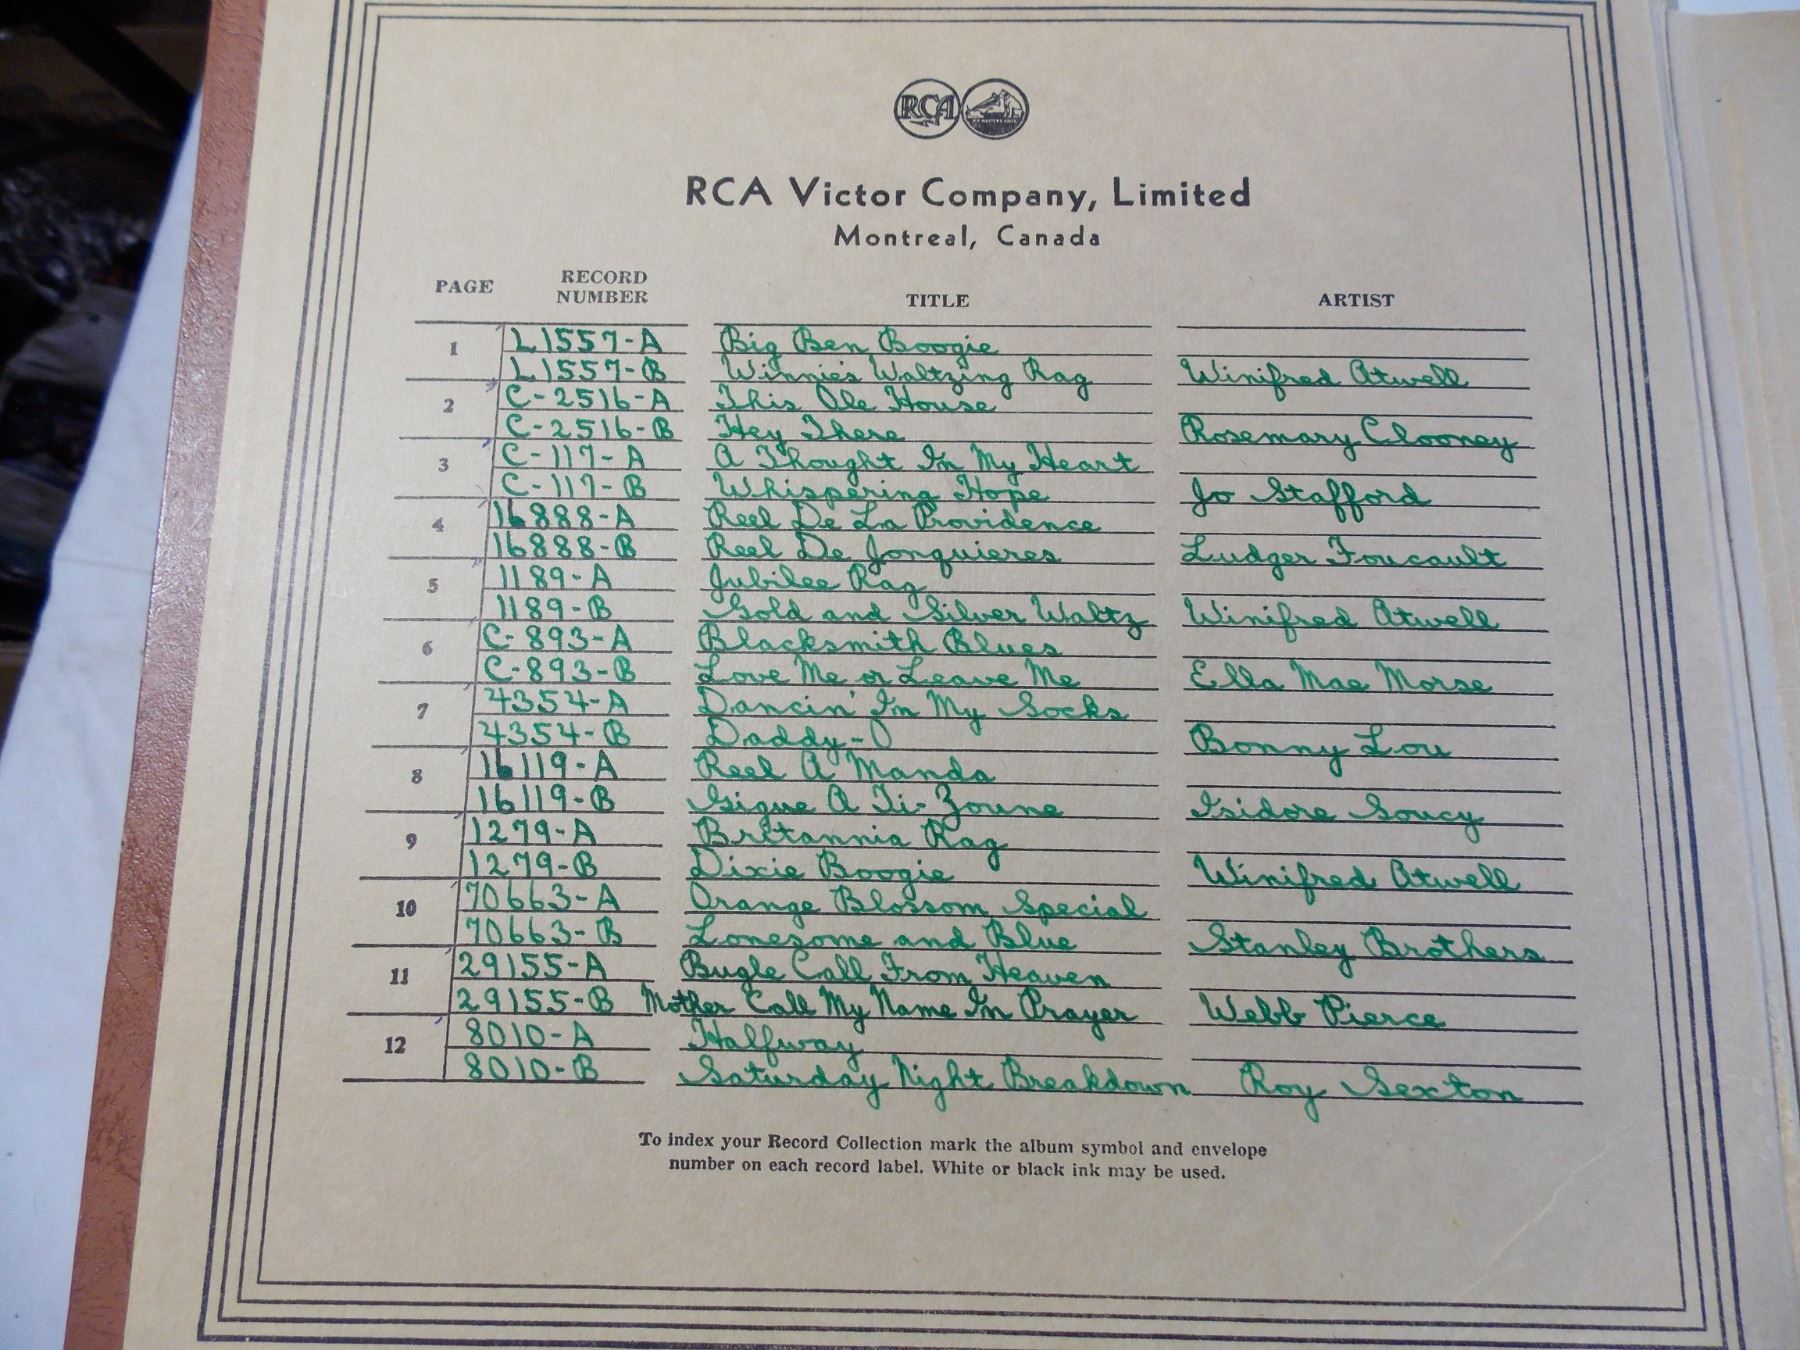 RCA
HIS MASTER'S VOICE
RCA Victor Company, Limited
Montreal, Canada
PAGE RECORD NUMBER TITLE ARTIST
1 L1557-A Big Ben Boogie
L1557-B Winnie's Waltzing Rag Winifred Atwell
2 C-2516-A This Ole House
C-2516-B Hey There Rosemary Clooney
3 C-117-A A Thought In My Heart
C-117-B Whispering Hope Jo Stafford
4 16888-A Reel De La Providence
16888-B Reel De Jonquieres Ludger Foucault
5 1189-A Jubilee Rag
1189-B Gold and Silver Waltz Winifred Atwell
6 C-893-A Blacksmith Blues
C-893-B Love Me or Leave Me Ella Mae Morse
7 4354-A Dancin' In My Socks
4354-B Daddy-O Bonny Lou
8 16119-A Reel A Manda
16119-B Gigue A Ti-Zoune Isidore Soucy
9 1279-A Britannia Rag
1279-B Dixie Boogie Winifred Atwell
10 70663-A Orange Blossom Special
70663-B Lonesome and Blue Stanley Brothers
11 29155-A Bugle Call From Heaven
29155-B Mother Call My Name In Prayer Webb Pierce
12 8010-A Halfway
8010-B Saturday Night Breakdown Roy Sexton
To index your Record Collection mark the album symbol and envelope
number on each record label. White or black ink may be used.